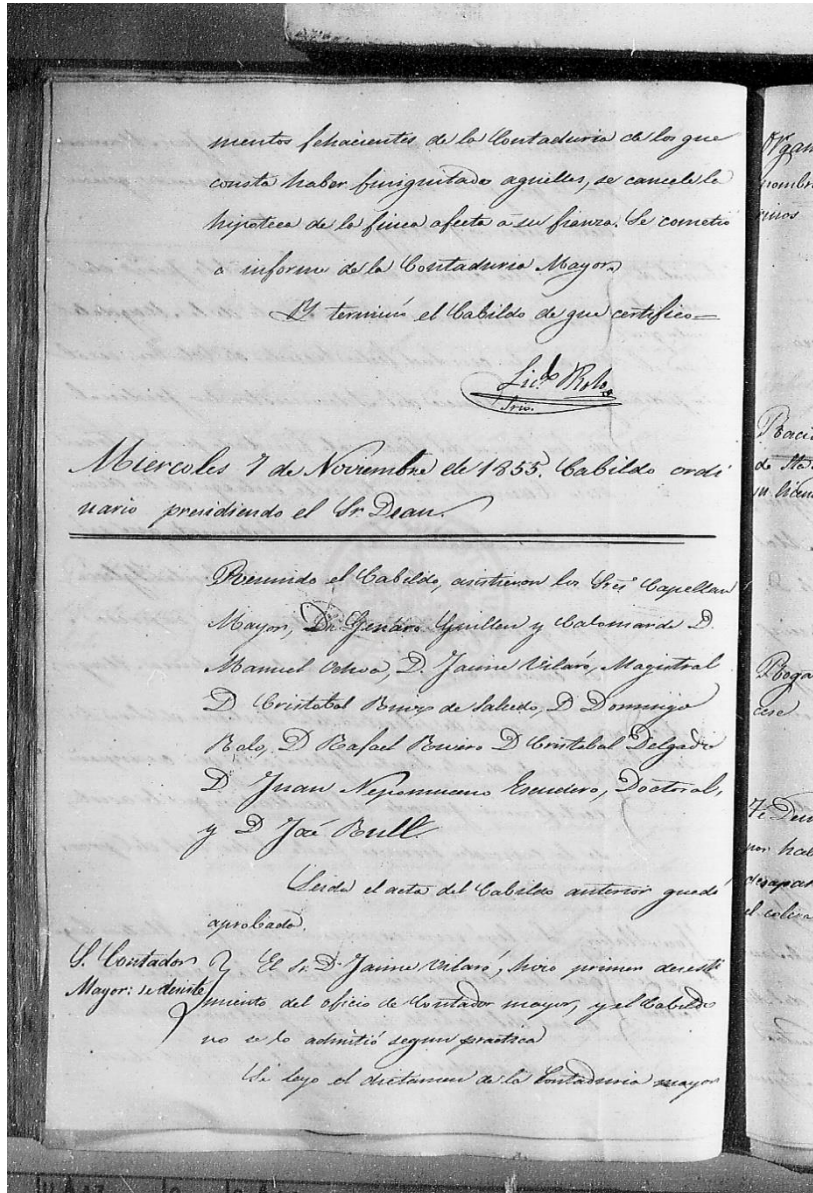 mentos fehacientes de la Contaduria de los que
consta haber finiquitado aquellas, se cancele la
hipoteca de la finca afecta á su fianza. Se cometió
a informe de la Contaduria Mayor.
Y terminó el Cabildo de que certifico=
Licdo Rolo
Srio.
Miercoles 7 de Noviembre de 1855. Cabildo ordi
nario presidiendo el Sr. Dean.
Reunido el Cabildo, asistieron los Sres. Capellan
Mayor, D. Genaro Guillen y Calomarde D.
Manuel Ochoa, D. Jaime Vilaró, Magistral
D Cristobal Ruiz de Salcedo, D Domingo
Rolo, D Rafael Rivero D Cristobal Delgado
D Juan Nepomuceno Escudero, Doctoral,
y D José Rull.
Leida el acta del Cabildo anterior quedó
aprobada.
S. Contador
Mayor: se desiste
El Sr. D. Jaime Vilaró, hizo primer desisti
miento del oficio de Contador mayor, y el Cabildo
no se lo admitió segun practica
Se leyo el dictamen de la Contaduria mayor
Organ
nombra
Raci
de
Roga
cese
Te Deum
por hab
desapar
el colera